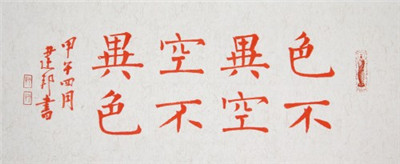 色不
異空
空不
異色
甲午四月
書